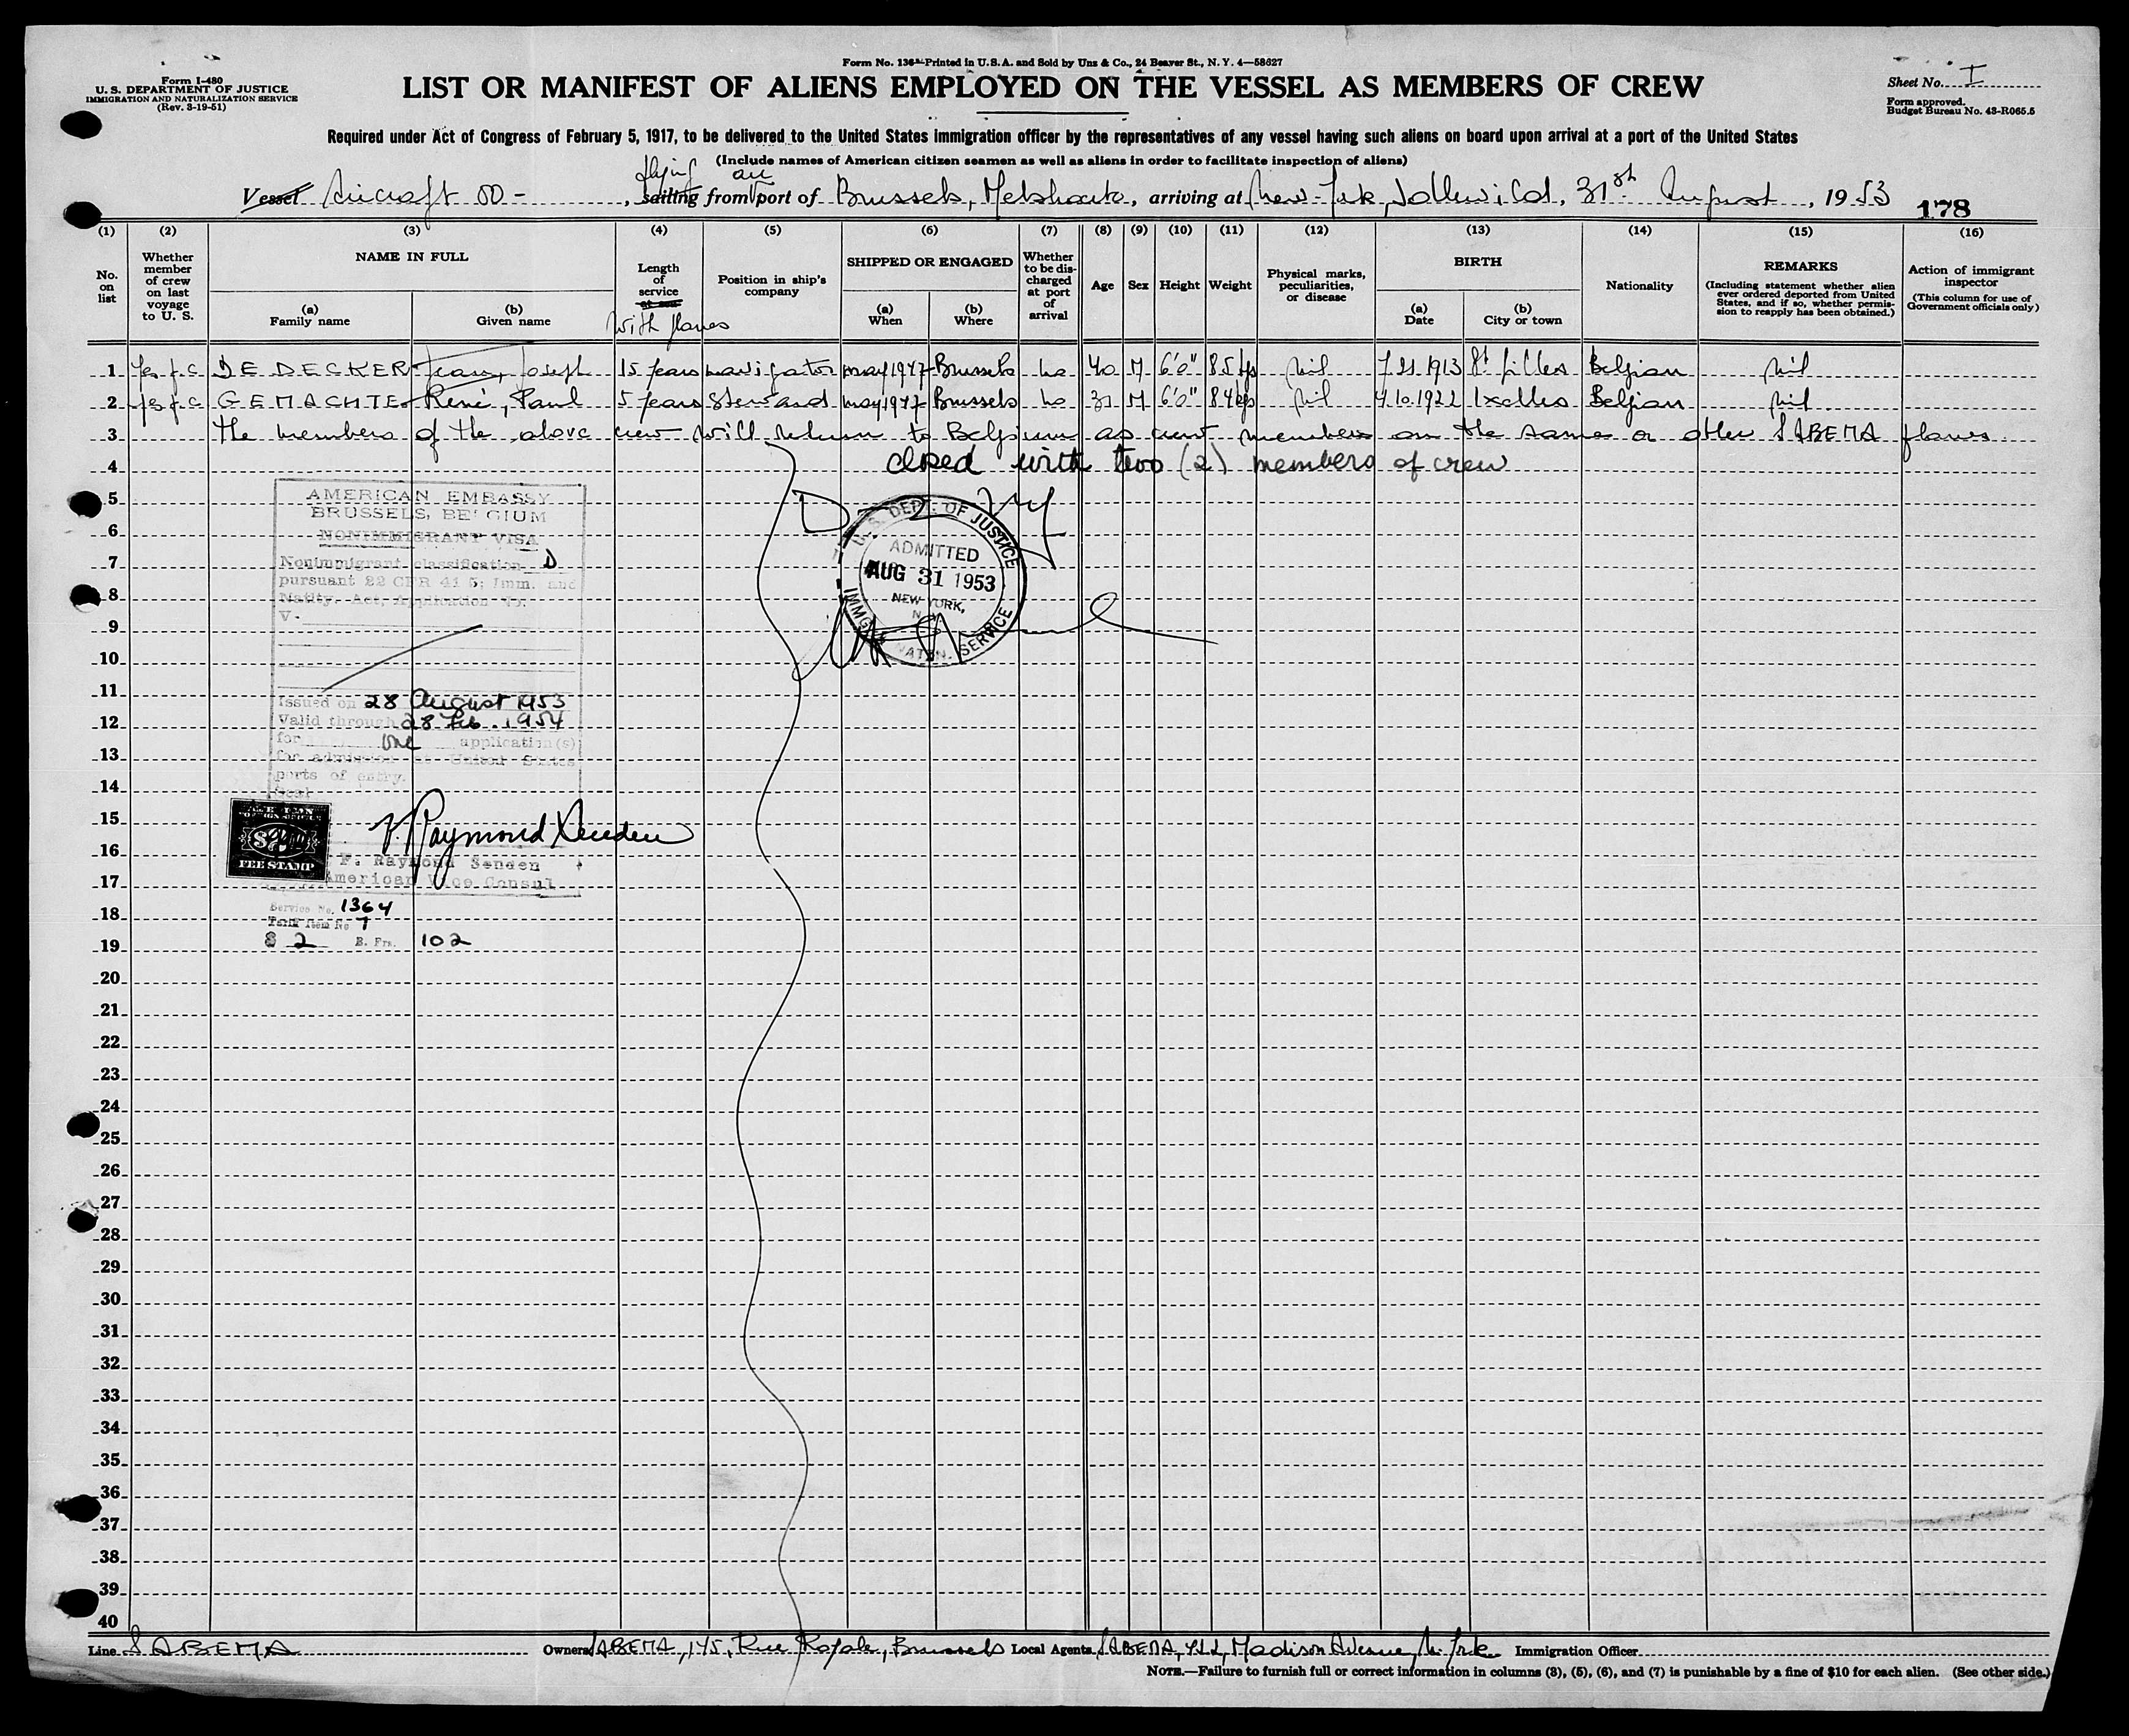 Form No. 136 Printed in U.S.A. and Sold by Unz & Co., 24 Beaver St., N. Y. 4—58627
Form I-480
U. S. DEPARTMENT OF JUSTICE
IMMIGRATION AND NATURALIZATION SERVICE
(Rev. 3-19-51)
LIST OR MANIFEST OF ALIENS EMPLOYED ON THE VESSEL AS MEMBERS OF CREW
Sheet No. I
Form approved.
Budget Bureau No. 43-R065.5
Required under Act of Congress of February 5, 1917, to be delivered to the United States immigration officer by the representatives of any vessel having such aliens on board upon arrival at a port of the United States
(Include names of American citizen seamen as well as aliens in order to facilitate inspection of aliens)
flying air
Vessel Aircraft OO- , sailing from port of Brussels, Melsbroek, arriving at New-York, Idlewild, 31st August, 1953 178
(1) (2) (3) (4) (5) (6) (7) (8) (9) (10) (11) (12) (13) (14) (15) (16)
No. on list
Whether member of crew on last voyage to U. S.
NAME IN FULL
(a) Family name
(b) Given name
Length of service at sea
with planes
Position in ship's company
SHIPPED OR ENGAGED
(a) When
(b) Where
Whether to be discharged at port of arrival
Age
Sex
Height
Weight
Physical marks, peculiarities, or disease
BIRTH
(a) Date
(b) City or town
Nationality
REMARKS
(Including statement whether alien ever ordered deported from United States, and if so, whether permission to reapply has been obtained.)
Action of immigrant inspector
(This column for use of Government officials only)
1 Yes f.c DE DECKER Jean, Joseph 15 years navigator may 1947 Brussels no 40 M 6'0" 85 kgs nil 1913 St Gilles Belgian nil
2 yes f.c GEMACHTE René, Paul 5 years Steward may 1947 Brussels no 30 M 6'0" 84 kgs nil 4.10.1922 Ixelles Belgian nil
3 The members of the above crew will return to Belgium as crew members on the same or other SABENA planes
4 closed with two (2) members of crew
5
6
7
8
9
10
11
12
13
14
15
16
17
18
19
20
21
22
23
24
25
26
27
28
29
30
31
32
33
34
35
36
37
38
39
40
AMERICAN EMBASSY
BRUSSELS, BELGIUM
NONIMMIGRANT VISA
Nonimmigrant classification D
pursuant 22 CFR 41.5; Imm. and
Natity. Act, Application No.
V-
Issued on 28 August 1953
Valid through 28 Feb. 1954
for one application(s)
for admission at United States
ports of entry.
Seal
U. S. DEPT. OF JUSTICE
ADMITTED
AUG 31 1953
NEW YORK,
N. Y.
IMMIG. NATZN. SERVICE
AMERICAN
FOREIGN SERVICE
FEE STAMP
F. Raymond Senden
F. Raymond Senden
American Vice Consul
Service No. 1364
Tariff Item No 7
$ 2 B. Frs. 102
Line SABENA Owners SABENA, 145, Rue Royale, Brussels Local Agents SABENA, 422, Madison Avenue, N. York Immigration Officer
NOTE.—Failure to furnish full or correct information in columns (3), (5), (6), and (7) is punishable by a fine of $10 for each alien. (See other side.)